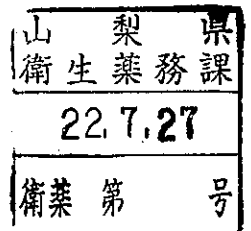 山梨県
衛生薬務課
22.7.27
衛薬第 号